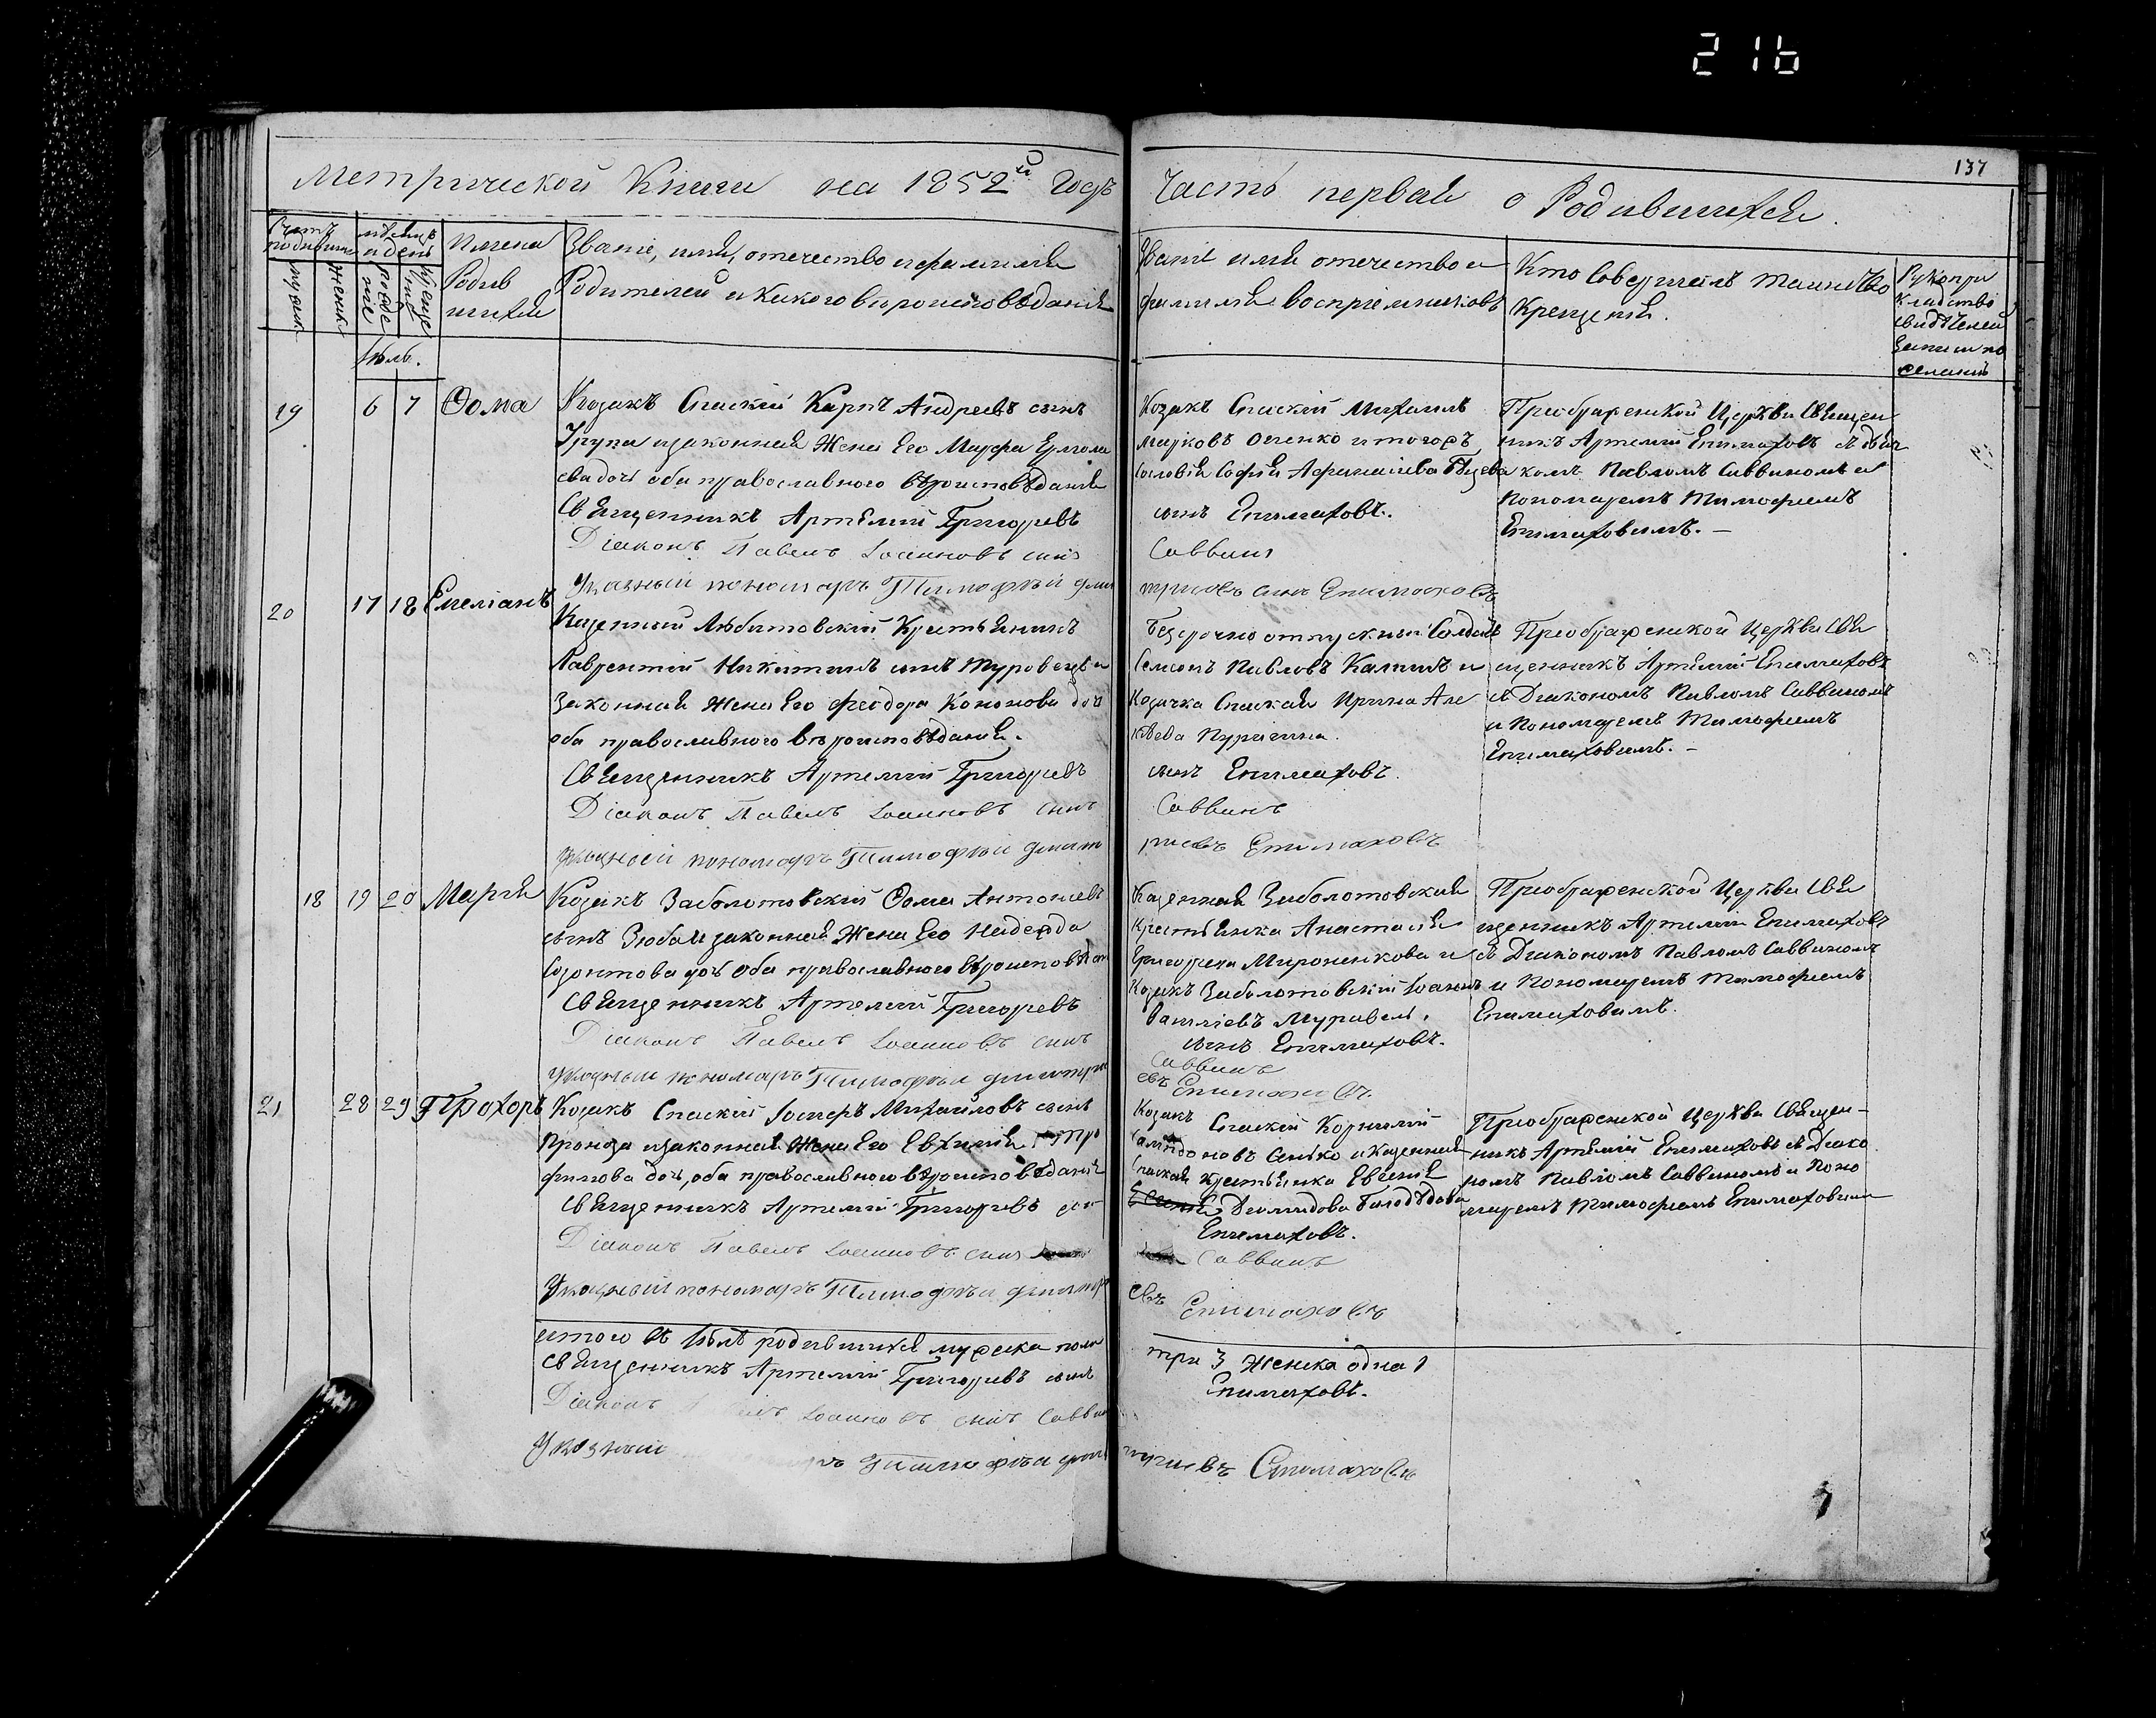 216
137
Метрической Книги на 1852й Годъ
Часть первая о Родившихся.
Счетъ родившихся
мѣсяцъ и день
муж.
женск.
рожденіе
крещеніе
Имена
Родив
шихся
Званіе, имя, отечество и фамилія
Родителей и какого вѣроисповѣданія
Званіе имя отечество и
фамилія воспріемниковъ
Кто Совершалъ таинство
Крещенія.
Рукопри
кладство
свидѣтелей
записи по
желанію
Іюль.
19
6 7 Ѳома
Козакъ Спаскій Карпъ Андреевъ сынъ
законная Жена Его Марфа Ермола
ева дочь оба православного вѣроисповѣданія
Священникъ Артемій Григорьевъ
Діаконъ Павелъ Іоанновъ сынъ
Указный пономарь Тимофѣй Дми
Козакъ Спаскій Михаилъ
Марковъ и тогожъ
сословія Софія Афанасіева
сынъ Епимаховъ.
Саввинъ
тріевъ сынъ Епимаховъ
Преображенской Церкви Священ
никъ Артемій Епимаховъ съ діа
кономъ Павломъ Саввиномъ и
Пономаремъ Тимофеемъ
Епимаховымъ. —
20
17 18 Емеліанъ
Казенный крестьянинъ
Лаврентій Никитинъ сынъ Туровецъ и
Законная Жена Его Феодора Кононова доч
оба православного вѣроисповѣданія.
Священникъ Артемій Григорьевъ
Діаконъ Павелъ Іоанновъ сынъ
Указный пономарь Тимофѣй Дмит
Безсрочно отпускной Солдатъ
Семіонъ Павловъ Калинъ и
Козачка Спаская Ирина Але
ксѣева
сынъ Епимаховъ.
Саввинъ
ріевъ Епимаховъ
Преображенской Церкви Свя
щенникъ Артемій Епимаховъ
съ Діакономъ Павломъ Саввиномъ
и Пономаремъ Тимофеемъ
Епимаховымъ. —
18 19 20 Марія
Козакъ Заболотовскій Ѳома Антоніевъ
сынъ Зюба и законная Жена Его Надежда
Созонтова дочь оба православного вѣроисповѣдан
Священникъ Артемій Григорьевъ
Діаконъ Павелъ Іоанновъ сынъ
Указный пономарь Тимофѣй Дмитри
Казенная Заболотовская
Крестьянка Анастасія
Григорьева Мироненкова и
Козакъ Заболотовскій Іоаннъ
Василіевъ Муравель.
сынъ Епимаховъ.
Саввинъ
евъ Епимаховъ
Преображенской Церкви Свя
щенникъ Артемій Епимаховъ
съ Діакономъ Павломъ Саввиномъ
и Пономаремъ Тимофеемъ
Епимаховымъ.
21
28 29 Прохоръ
Козакъ Спаскій Іосифъ Михайловъ сынъ
Пронза и законная Жена Его Евфимія Тро
фимова дочь, оба православного вѣроисповѣданія
Священникъ Артемій Григорьевъ сын
Діаконъ Павелъ Іоанновъ сынъ
Указный пономарь Тимофѣй Дмитрі
Козакъ Спаскій Корнилій
Сенько и Казенная
Спаская крестьянка Евгенія
Діомидова Билодѣдова
Епимаховъ.
Саввинъ
евъ Епимаховъ
Преображенской Церкви Священ-
никъ Артемій Епимаховъ съ Діако
номъ Павломъ Саввиномъ и Поно
маремъ Тимофеемъ Епимаховымъ
итого въ Іюлѣ родившихся мужска пола
три 3 Женска одна 1
Священникъ Артемій Григорьевъ сынъ
Епимаховъ.
Діаконъ Іоанновъ сынъ Саввин
Указный Тимофѣй Дми
тріевъ Епимаховъ